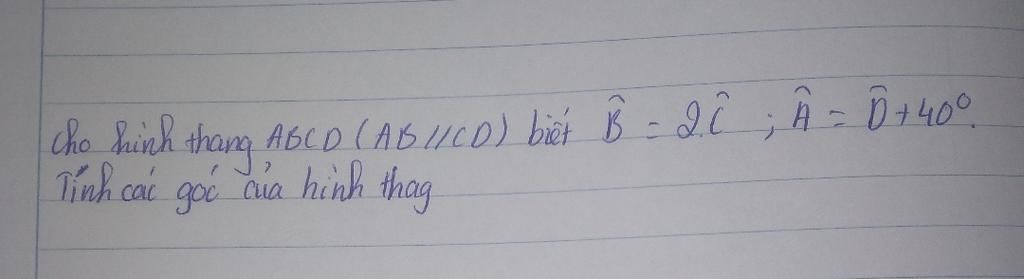 Cho hình thang ABCD (AB//CD) biết B̂ = 2.Ĉ ; Â = D̂ + 40°.
Tính các góc của hình thag